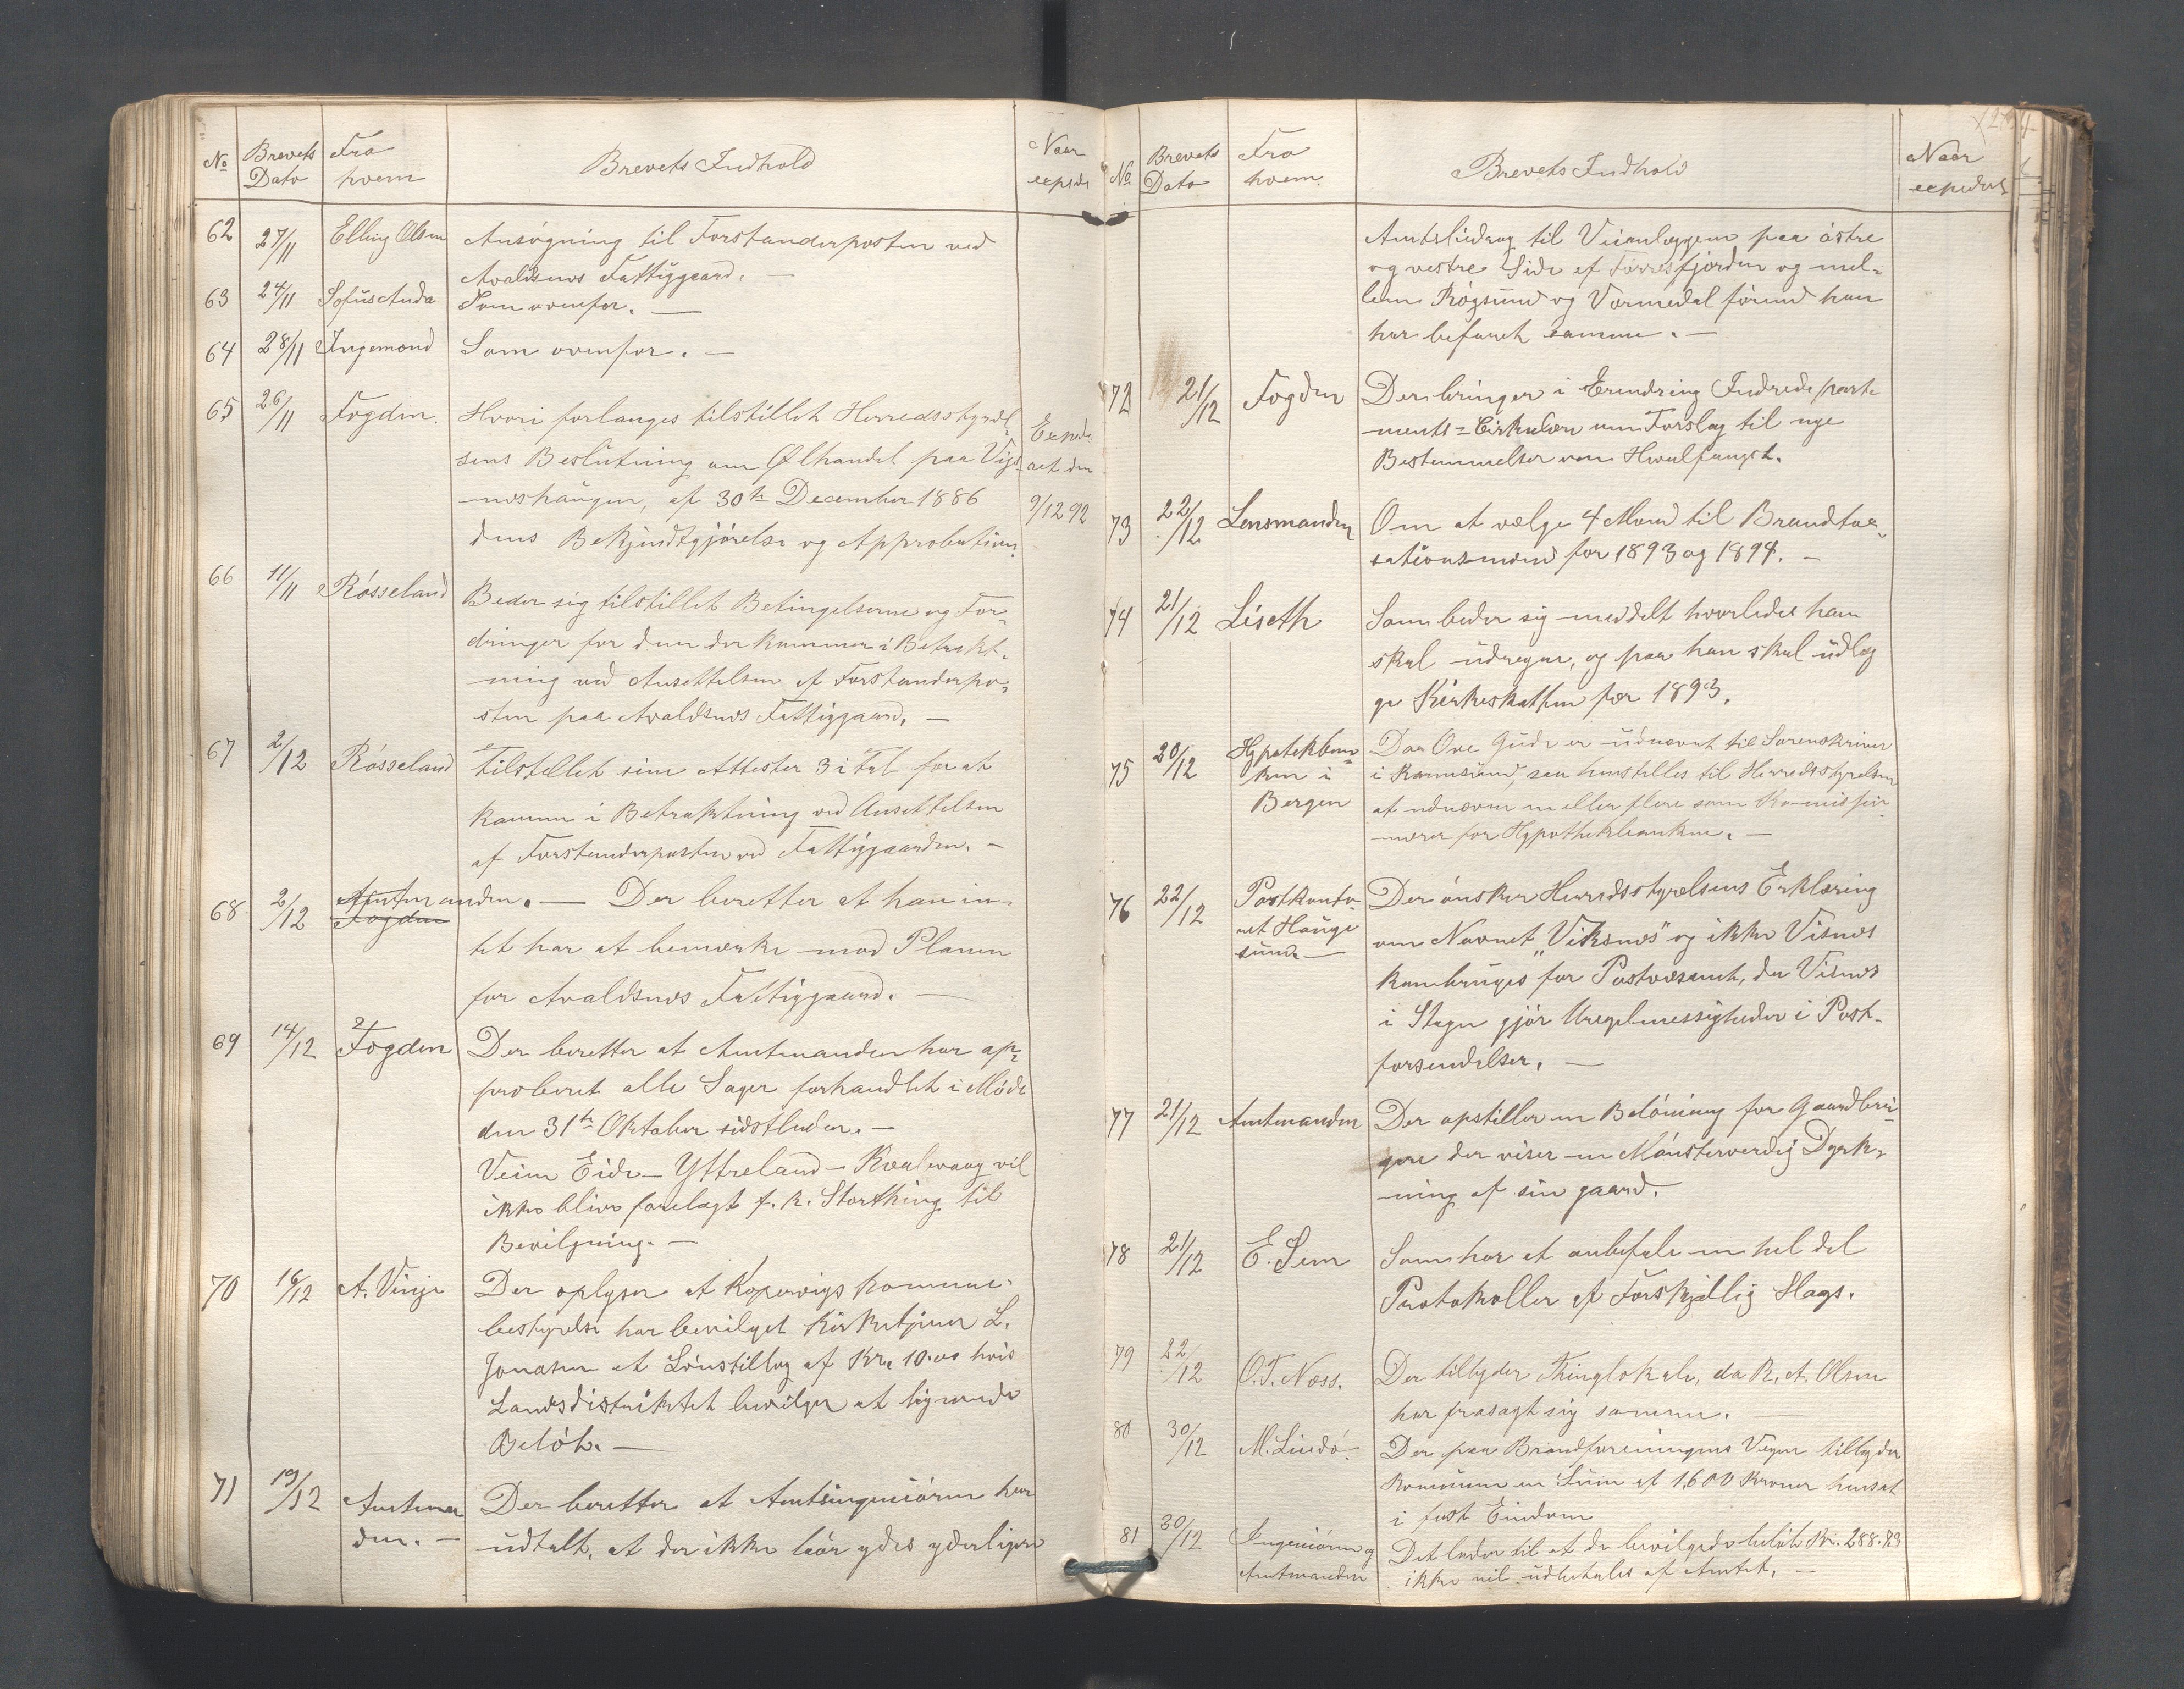 No Brevets Dato Fra hvem Brevets Indhold Naar expedr
62 27/11 Elling Olsen Ansøgning til Forstanderposten ved
Avaldsnes Fattiggaard. —
63 24/11 Sofus Anda Som ovenfor. —
64 28/11 Ingemond Som ovenfor. —
65 26/11 Fogden. Hvori forlanges tilstillet Herredsstyrel-
sens Beslutning om Ølhandel paa Vigs-
næshaugen, af 30te December 1886
dens Bekjendtgjørelse og Approbation.
Exped-
ret den
9/12 92
66 11/11 Røsseland Beder sig tilstillet Betingelserne og For-
dringer for dem der kommer i Betrakt-
ning ved Ansettelsen af Forstanderpo-
sten paa Avaldsnes Fattiggaard. —
67 2/12 Røsseland Tilstillet sine Attester 3 i Tal for at
komme i Betraktning ved Ansettelsen
af Forstanderposten ved Fattiggaarden. —
68 2/12 Amtmanden. — Der beretter at han in-
Fogden
tet har at bemærke mod Planen
for Avaldsnes Fattiggaard. —
69 14/12 Fogden Der beretter at Amtmanden har ap-
proberet alle Sager forhandlet i Møde
den 31te Oktober sidstleden. —
Veien Eide — Yttreland — Kvalevaag vil
ikke blive forelagt f. k. Storthing til
Bevilgning. —
70 16/12 A. Vinje Der oplyser at Kopervigs komune-
bestyrelse har bevilget Kirketjener L.
Jonasen et Lønstillæg af Kr. 10.00 hvis
Landsdistriktet bevilger et lignende
Beløb. —
71 19/12 Amtman
den. — Der beretter at Amtsingeniøren har
udtalt, at der ikke bør ydes yderligere
No Brevets Dato Fra hvem Brevets Indhold Naar expederet
Amtsbidrag til Veianlæggene paa østre
og vestre Side af Førresfjorden og mel-
lem Røgsund og Vormedal førend han
har befaret samme. —
72 21/12 Fogden Der bringer i Erindring Indredeparte
ments-Cirkulære om Forslag til nye
Bestemmelser om Hvalfangst.
73 22/12 Lensmanden Om at vælge 4 Mænd til Brandtax-
sationsmænd for 1893 og 1894. —
74 21/12 Liseth Som beder sig meddelt hvorledes han
skal udregne, og paa han skal udlig
ge Kirkeskatten for 1893.
75 20/12 Hypotekban-
ken i
Bergen Daa Ove Gude er udnævnt til Sorenskriver
i Karmsund, saa henstilles til Herredsstyrelsen
at udnævne en eller flere som Komissio-
nærer for Hypothekbanken. —
76 22/12 Postkonto-
ret Hauge
sund — Der ønsker Herredsstyrelsens Erklæring
om Navnet „Viksnes" og ikke Visnes
kan bruges for Postvæsenet, da Visnes
i Stegen gjør Uregelmessigheder i Post-
forsendelser. —
77 21/12 Amtmanden Der opstiller en Belønning for Gaardbru-
gere der viser en Mønsterverdig Dyrk-
ning af sin gaard.
78 21/12 E. Sem Som har at anbefale en hel del
Protokoller af Forskjellig Slags.
79 22/12 O. T. Næss. Der tilbyder Thinglokale, da K. A. Olsen
har frasagt sig samme. —
80 30/12 M. Lindø — Der paa Brandforeningens Vegne tilbyder
Komunen en Sum af 1,600 Kroner
i fast Eiendom
81 30/12 Ingeniøren og
Amtmanden Det lader til at de bevilgede beløb Kr. 288.73
ikke vil udbetales af Amtet. —